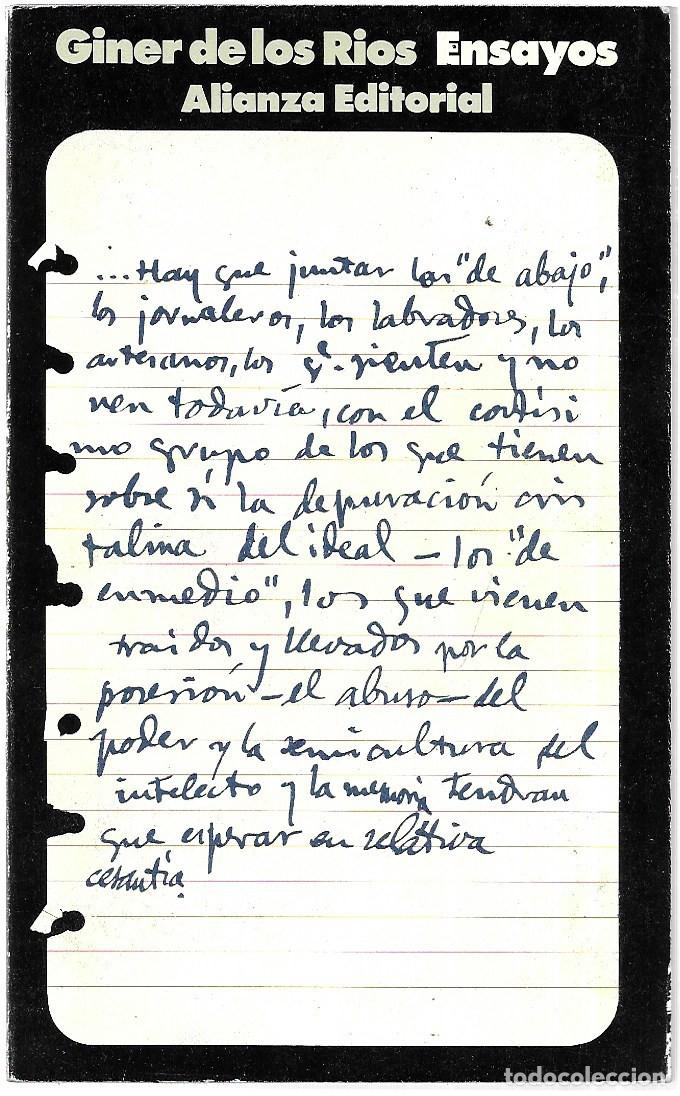 Giner de los Rios Ensayos
Alianza Editorial
...Hay que juntar los "de abajo",
los jornaleros, los labradores, los
artesanos, los qe. sienten y no
ven todavía, con el cortísi
mo grupo de los que tienen
sobre sí la depuración cris
talina del ideal – los "de
enmedio", los que vienen
traidos y llevados por la
posesión – el abuso – del
poder y la semicultura del
intelecto y la memoria tendran
que esperar en relativa
cesantía.
todocoleccion